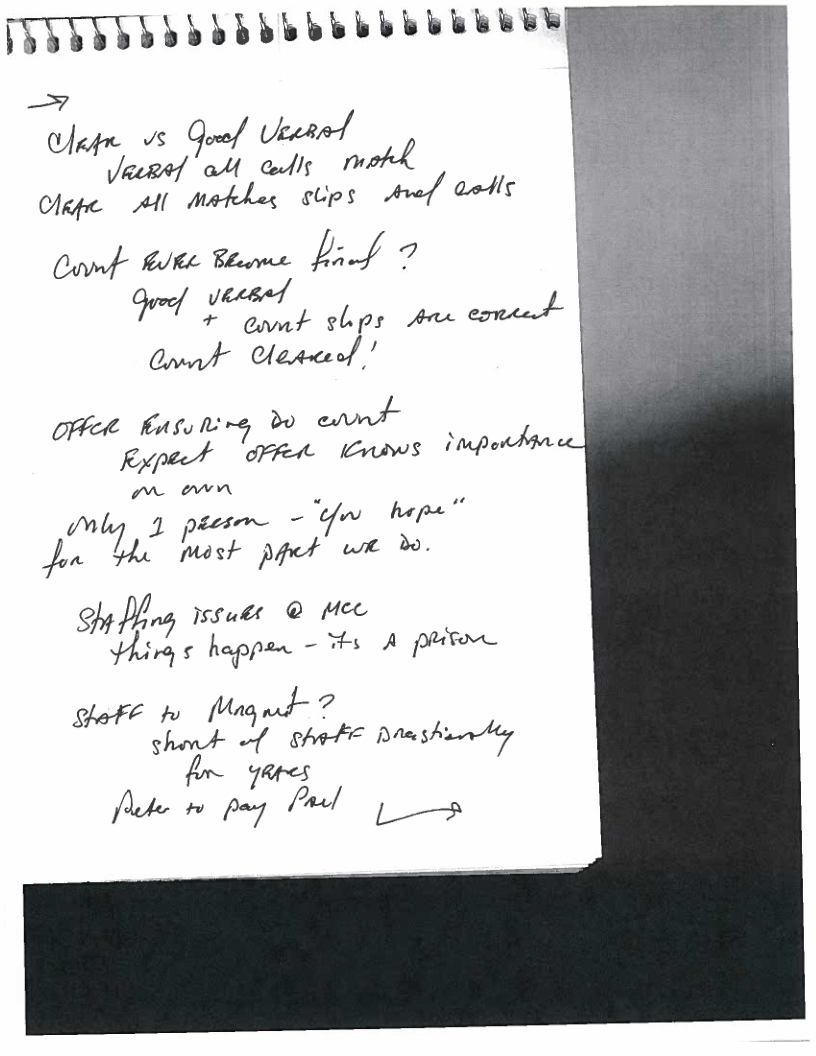 →
Clear vs good Verbal
Verbal all calls match
Clear All Matches slips And calls
Count Ever Become final ?
good verbal
+ count slips are correct
Count Cleared!
Offcr Ensuring Do count
Expect offcr Knows importance
on own
only 1 person - "you hope"
for the most part we do.
Staffing issues @ MCC
things happen - its A prison
Staff to Mngmt ?
short of staff Drastically
for years
Peter to pay Paul